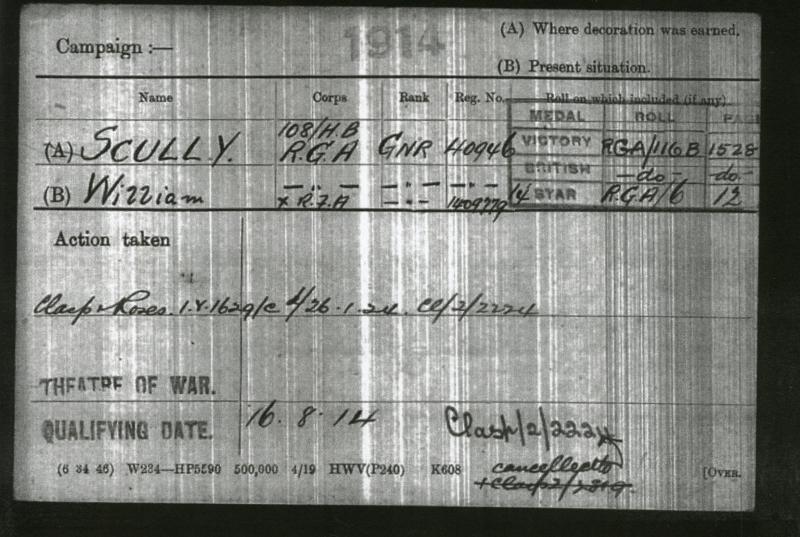 Campaign :— 1914 (A) Where decoration was earned.
(B) Present situation.
Name Corps Rank Reg. No. Roll on which included (if any)
MEDAL ROLL PAGE
108/H.B
(A) SCULLY. R.G.A GNR 40946 VICTORY RGA/116B 1528
BRITISH —do— -do-
(B) William —"— —"— —"— 14 STAR R.G.A/6 12
x R.F.A —"— 1409779
Action taken
Clasp & Roses. I.V.1629/c d/26.1.24. Cl/2/2224
THEATRE OF WAR.
QUALIFYING DATE. 16. 8. 14 Clasp/2/2224
(6 34 46) W234—HP5590 500,000 4/19 HWV(P240) K608 cancelled [OVER.
+Clasp2/2819.